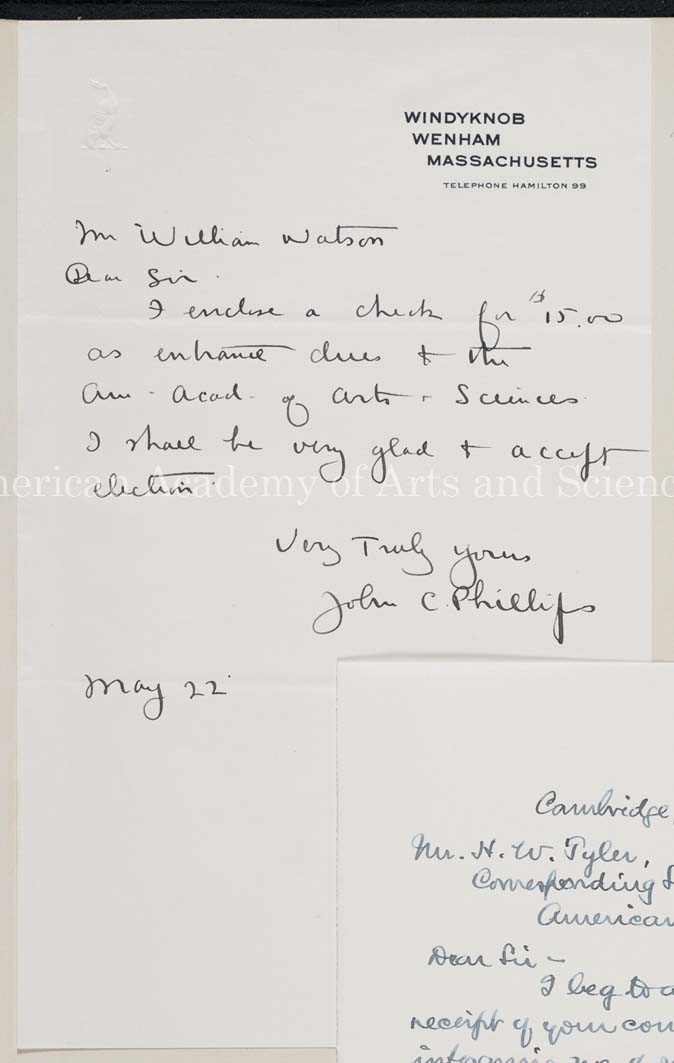 WINDYKNOB
WENHAM
MASSACHUSETTS
TELEPHONE HAMILTON 99
Mr William Watson
Dear Sir.
I enclose a check for $15.00
as entrance dues to the
Am. Acad. of Arts + Sciences.
I shall be very glad to accept
election.
American Academy of Arts and Scienc
Very Truly yours
John C. Phillips
May 22
Cambridge,
Mr. H. W. Tyler,
Corresponding S
American
Dear Sir –
I beg to a
receipt of your com
informing me of